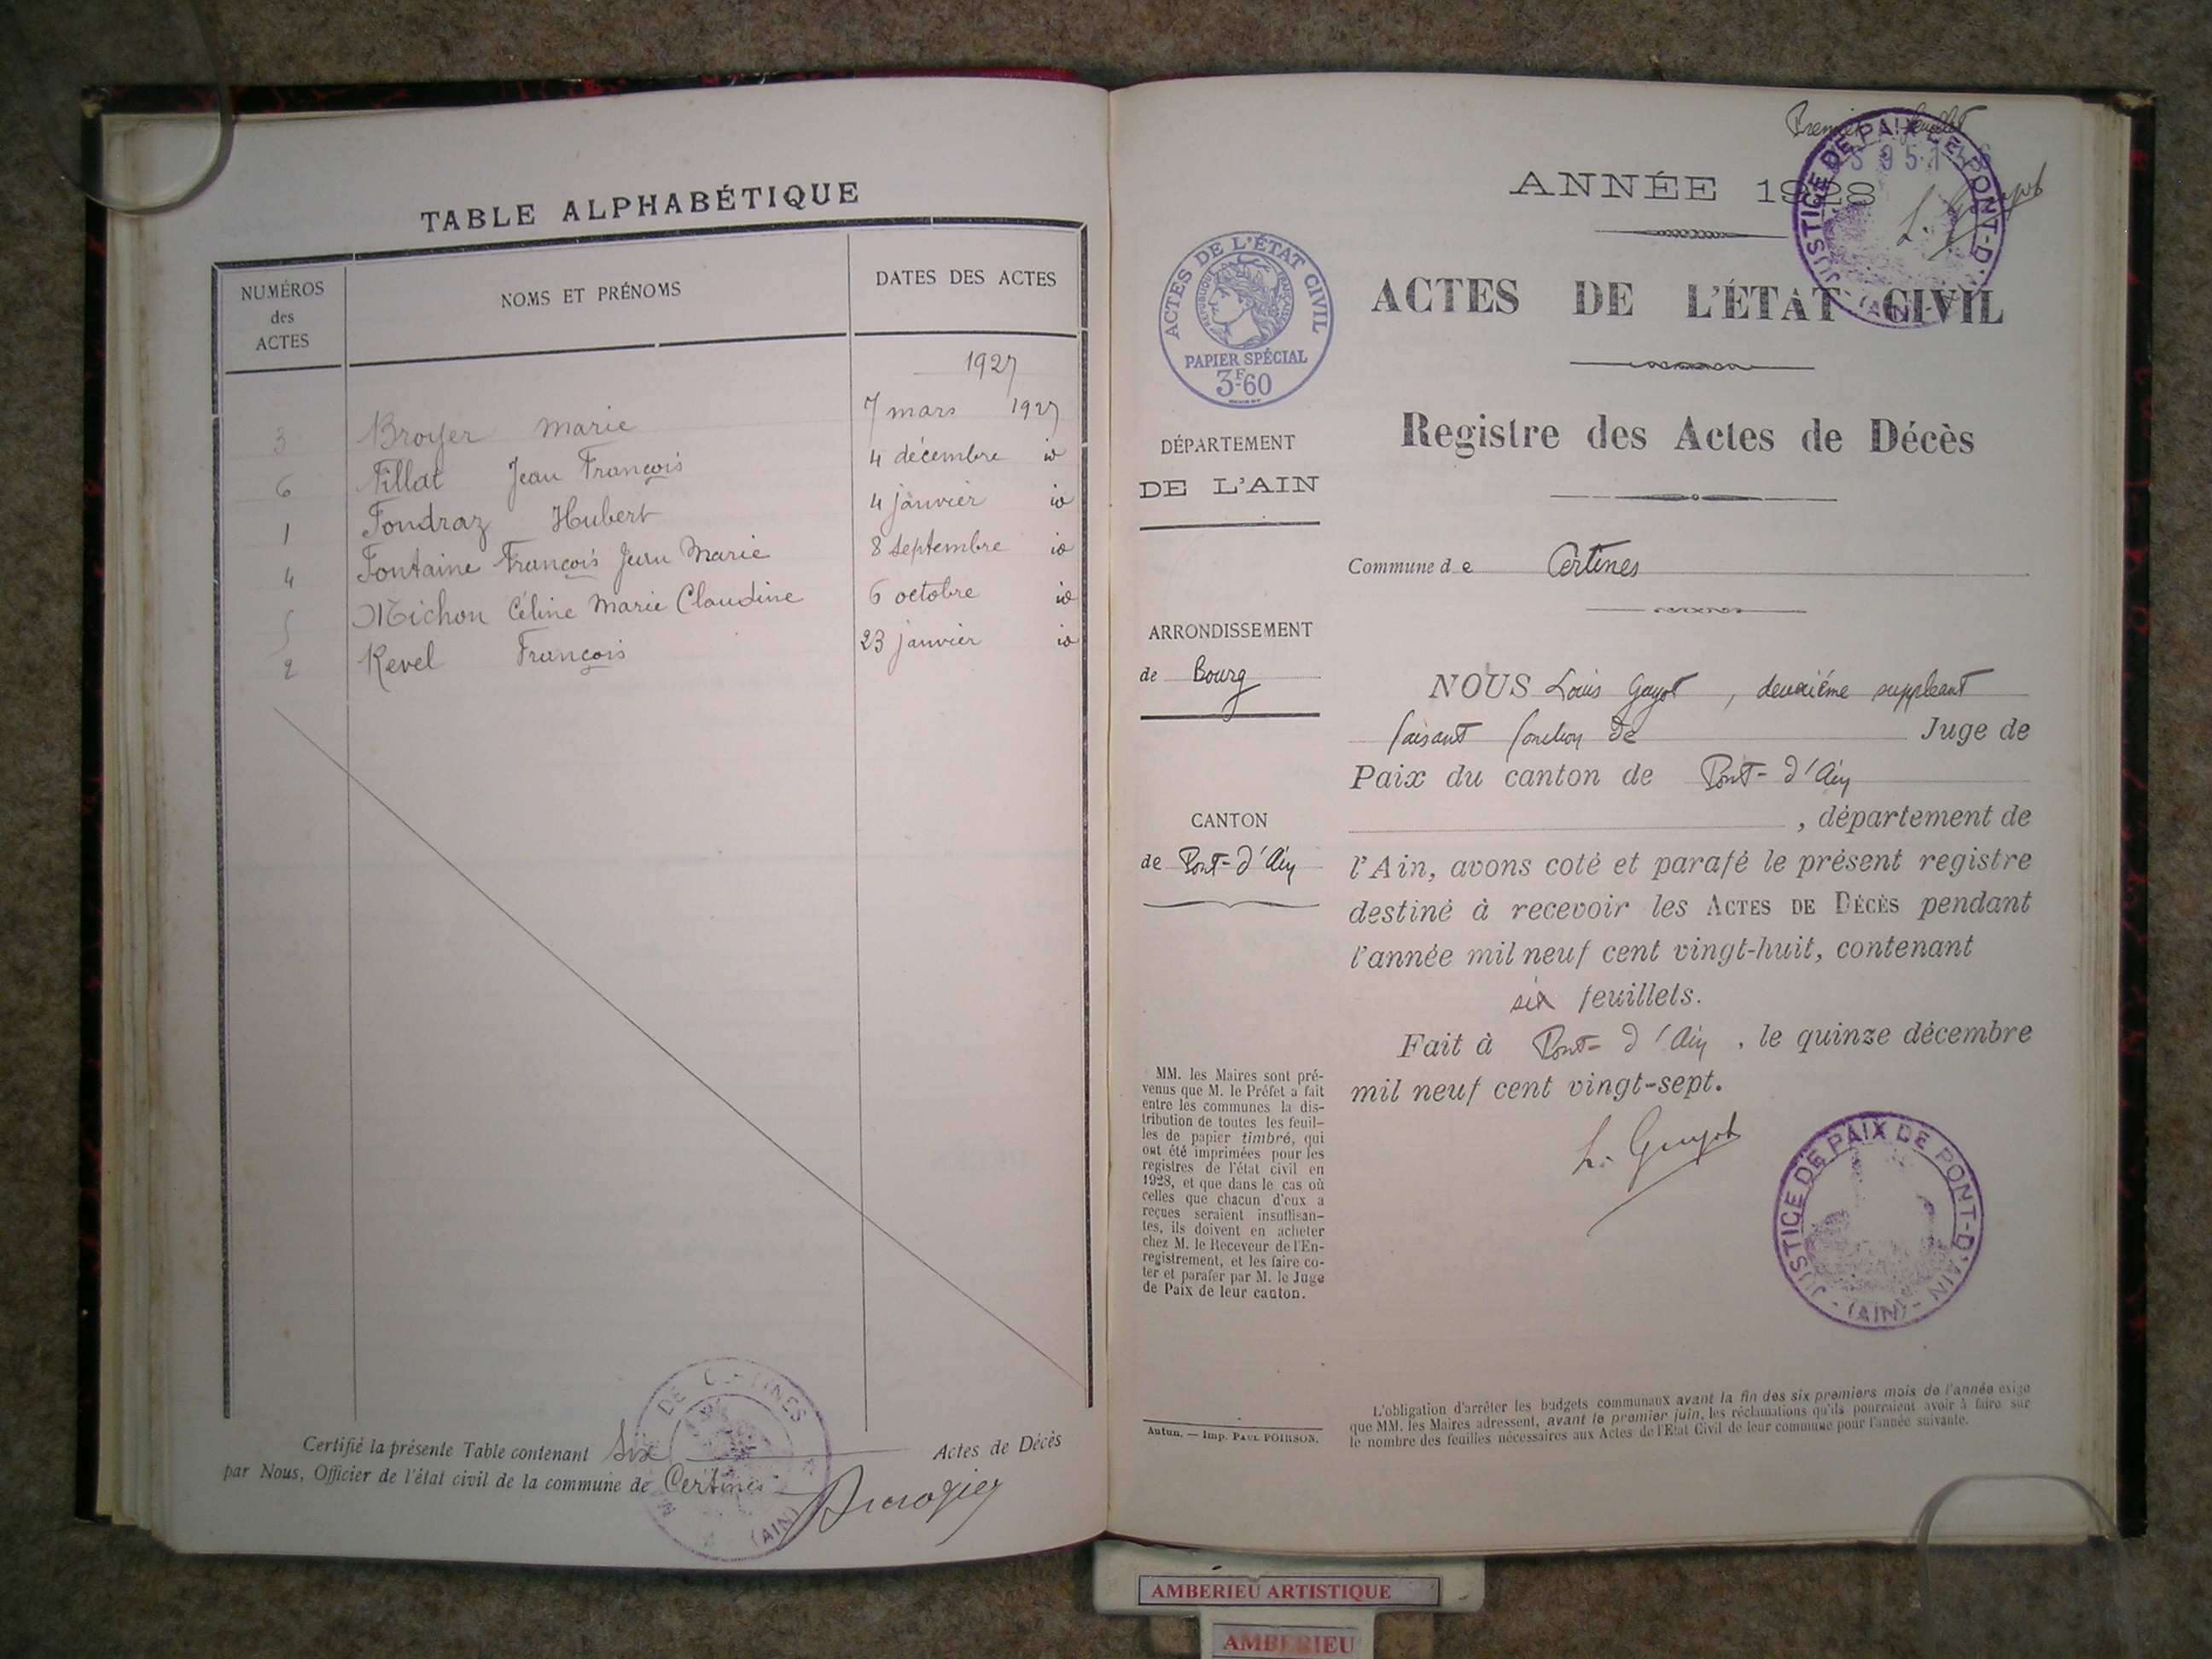 TABLE ALPHABÉTIQUE
NUMÉROS
des
ACTES
NOMS ET PRÉNOMS
DATES DES ACTES
1927
3 Broyer Marie 7 mars 1927
6 Fillat Jean François 4 décembre id
1 Fondraz Hubert 4 janvier id
4 Fontaine François Jean Marie 8 septembre id
5 Michon Céline Marie Claudine 6 octobre id
2 Revel François 23 janvier id
Certifié la présente Table contenant Six Actes de Décès
par Nous, Officier de l'état civil de la commune de Certines
DE CERTINES
(AIN)
Premier feuillet
ANNÉE 1928
JUSTICE DE PAIX DE PONT-D'AIN
(AIN)
ACTES DE L'ÉTAT CIVIL
RÉPUBLIQUE FRANÇAISE
PAPIER SPÉCIAL
3F.60
ACTES DE L'ÉTAT CIVIL
Registre des Actes de Décès
DÉPARTEMENT
DE L'AIN
Commune de Certines
ARRONDISSEMENT
de Bourg
CANTON
de Pont-d'Ain
NOUS Louis Guyot, deuxième suppléant
faisant fonction de Juge de
Paix du canton de Pont-d'Ain
, département de
l'Ain, avons coté et parafé le présent registre
destiné à recevoir les ACTES DE DÉCÈS pendant
l'année mil neuf cent vingt-huit, contenant
six feuillets.
Fait à Pont-d'Ain, le quinze décembre
mil neuf cent vingt-sept.
L. Guyot
JUSTICE DE PAIX DE PONT-D'AIN
- (AIN) -
MM. les Maires sont pré-
venus que M. le Préfet a fait
entre les communes la dis-
tribution de toutes les feuil-
les de papier timbré, qui
ont été imprimées pour les
registres de l'état civil en
1928, et que dans le cas où
celles que chacun d'eux a
reçues seraient insuffisan-
tes, ils doivent en acheter
chez M. le Receveur de l'En-
registrement, et les faire co-
ter et parafer par M. le Juge
de Paix de leur canton.
Autun. — Imp. PAUL POIRSON.
L'obligation d'arrêter les budgets communaux avant la fin des six premiers mois de l'année exige
que MM. les Maires adressent, avant le premier juin, les réclamations qu'ils pourraient avoir à faire sur
le nombre des feuilles nécessaires aux Actes de l'Etat Civil de leur commune pour l'année suivante.
AMBERIEU ARTISTIQUE
AMBERIEU